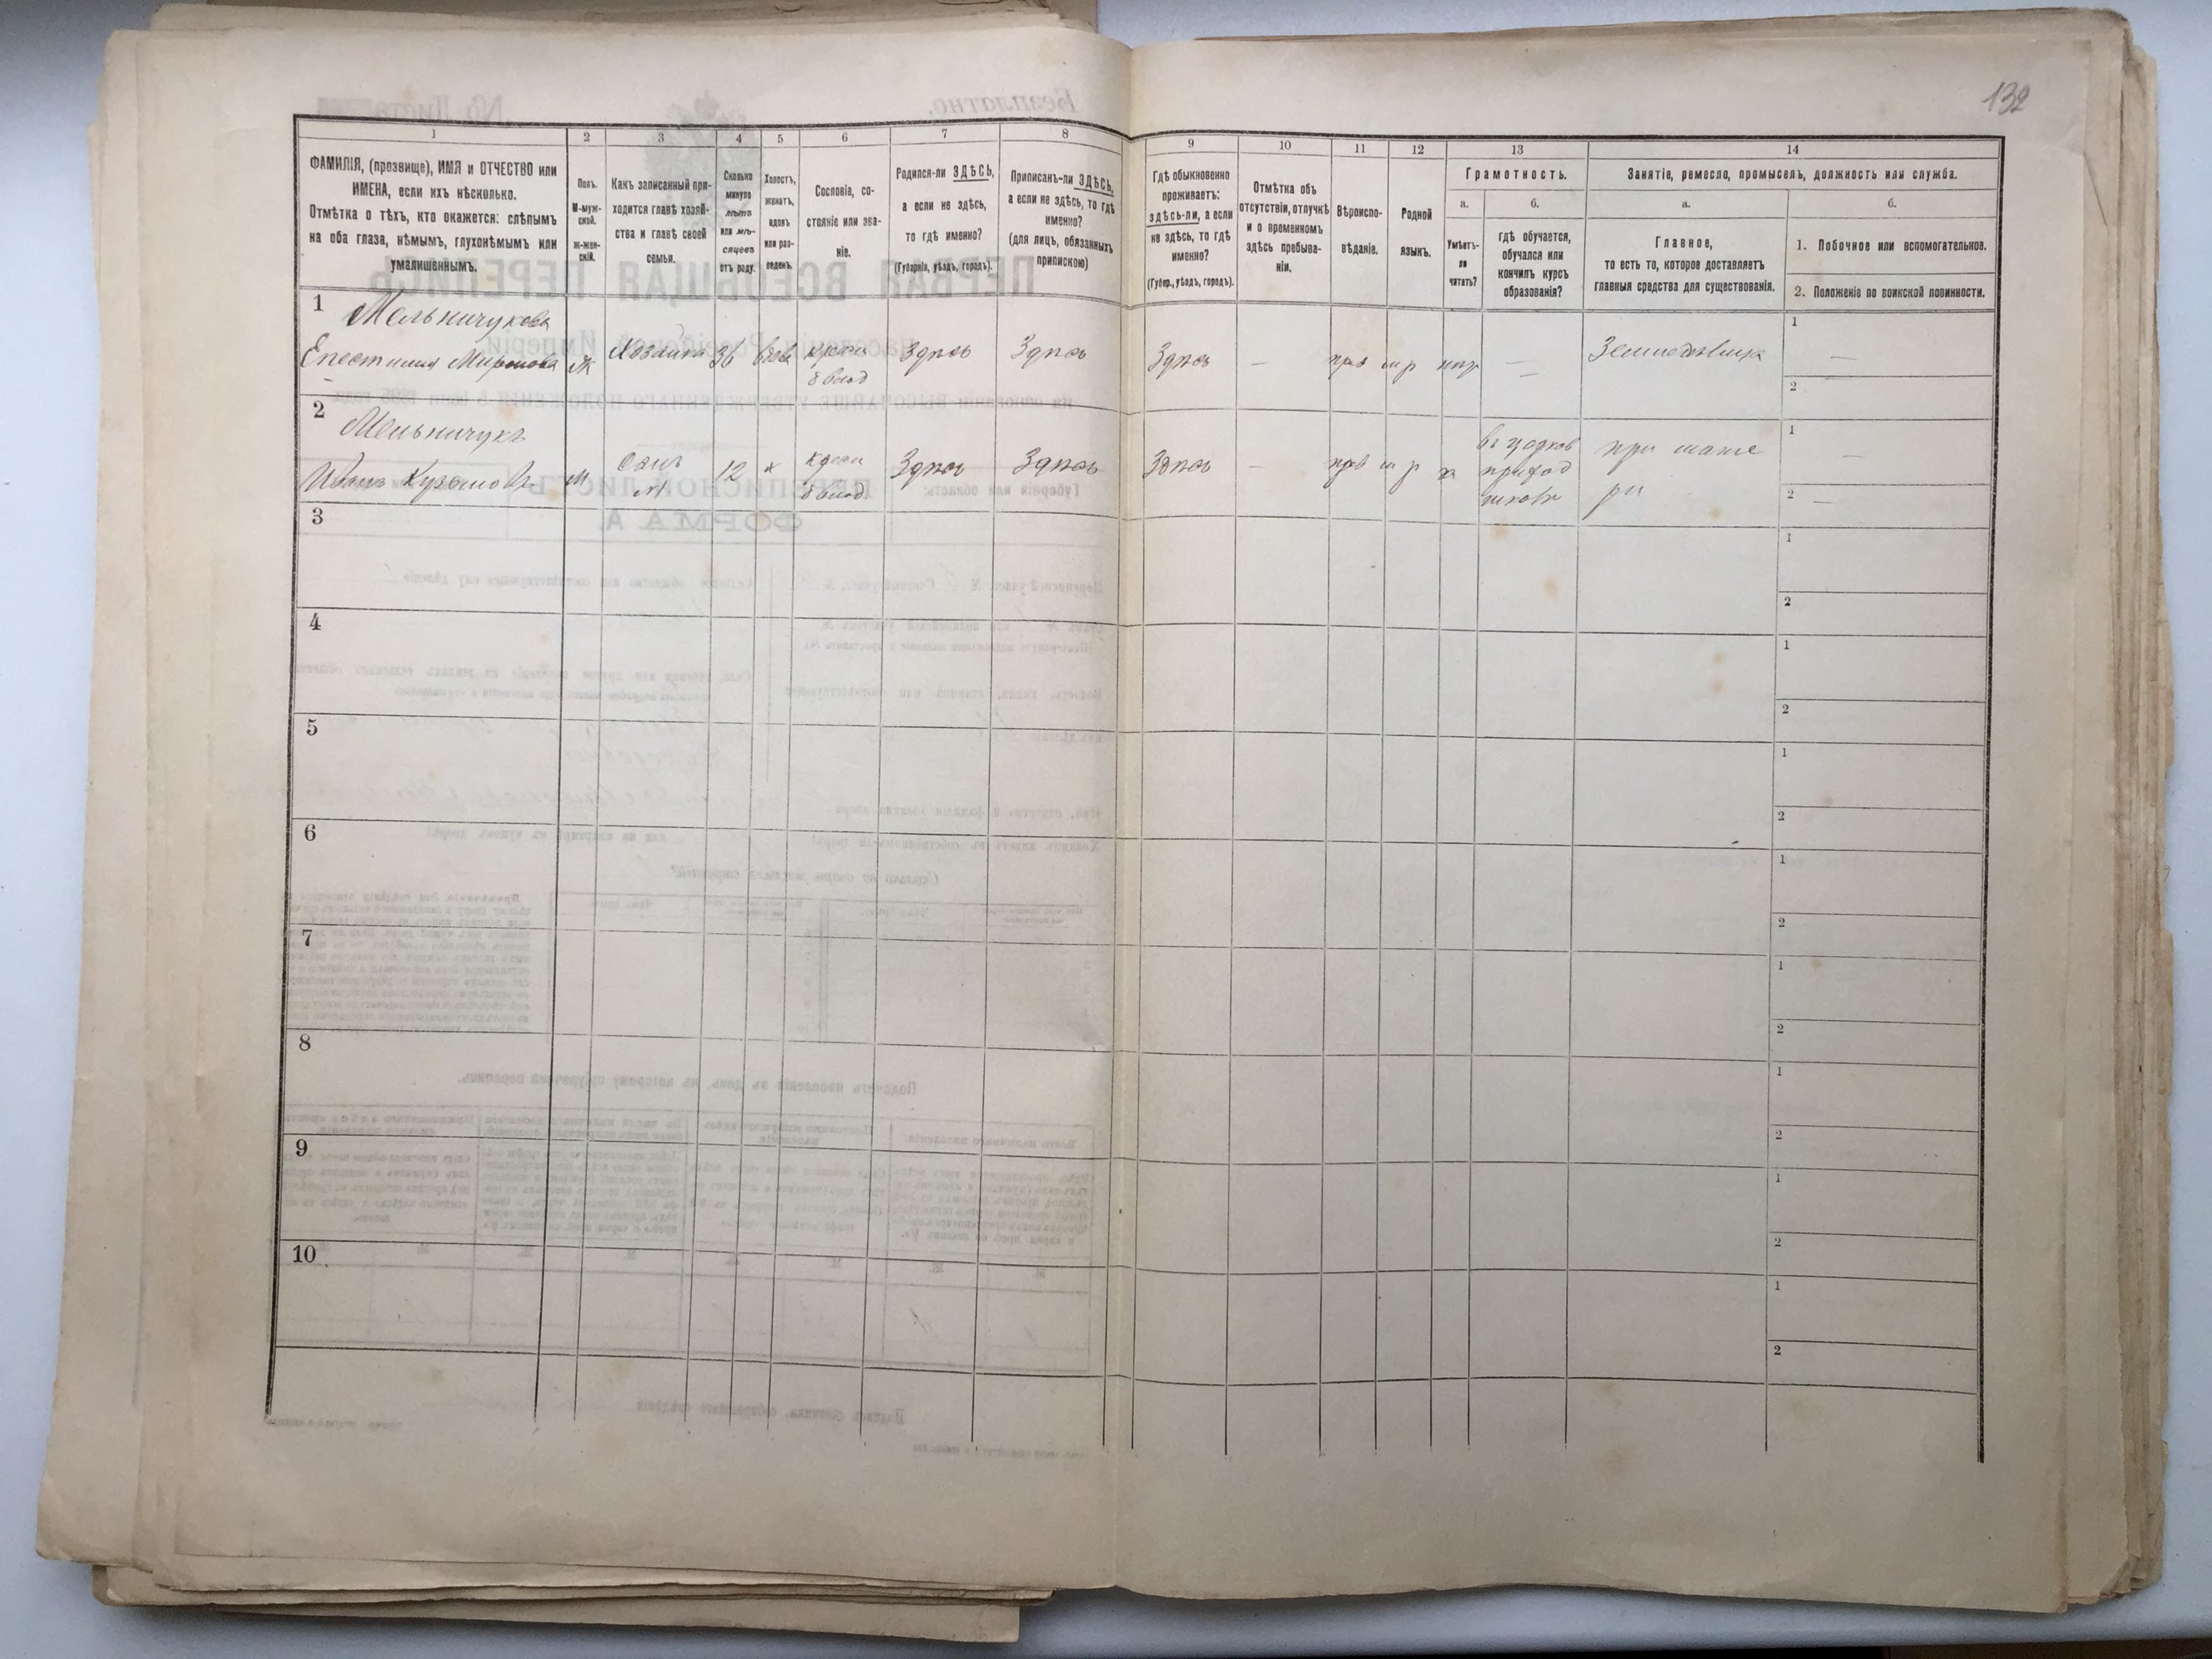 132
1
2
3
4
5
6
7
8
9
10
11
12
13
14
ФАМИЛІЯ, (прозвище), ИМЯ и ОТЧЕСТВО или
ИМЕНА, если ихъ нѣсколько.
Отмѣтка о тѣхъ, кто окажется: слѣпымъ
на оба глаза, нѣмымъ, глухонѣмымъ или
умалишеннымъ.
Полъ.
М-муж-
ской.
ж-жен-
скій.
Какъ записанный при-
ходится главѣ хозяй-
ства и главѣ своей
семьи.
Сколько
минуло
лѣтъ
или мѣ-
сяцевъ
отъ роду.
Холостъ,
женатъ,
вдовъ
или раз-
веденъ.
Сословіе, со-
стояніе или зва-
ніе.
Родился-ли ЗДѢСЬ,
а если не здѣсь,
то гдѣ именно?
(Губернія, уѣздъ, городъ).
Приписанъ-ли ЗДѢСЬ,
а если не здѣсь, то гдѣ
именно?
(для лицъ, обязанныхъ
припискою)
Гдѣ обыкновенно
проживаетъ:
здѣсь-ли, а если
не здѣсь, то гдѣ
именно?
(Губер., уѣздъ, городъ).
Отмѣтка объ
отсутствіи, отлучкѣ
и о временномъ
здѣсь пребыва-
ніи.
Вѣроиспо-
вѣданіе.
Родной
языкъ.
Грамотность.
а.
Умѣетъ-
ли
читать?
б.
гдѣ обучается,
обучался или
кончилъ курсъ
образованія?
Занятіе, ремесло, промыселъ, должность или служба.
а.
Главное,
то есть то, которое доставляетъ
главныя средства для существованія.
б.
1. Побочное или вспомогательное.
2. Положеніе по воинской повинности.
1
Мельничукова
Епестимия Миронова
Ж
Хозяйка
36
вдова
крест
б влад
Здѣсь
Здѣсь
Здѣсь
—
прав
м р
—
Земледѣлица
1
—
2
2
Мельничукъ
Иванъ Кузьмовъ
М
сынъ
12
х
крест
б влад
Здѣсь
Здѣсь
Здѣсь
—
прав
м р
приход
школѣ
при мате
ри
1
—
2
—
3
1
2
4
1
2
5
1
2
6
1
2
7
1
2
8
1
2
9
1
2
10
1
2